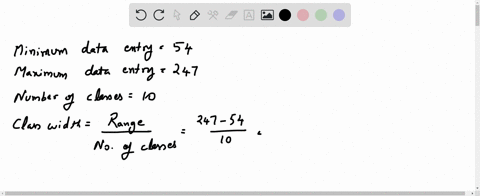 Minimum data entry = 54
Maximum data entry = 247
Number of classes = 10
Class width = Range / No. of classes = 247 - 54 / 10